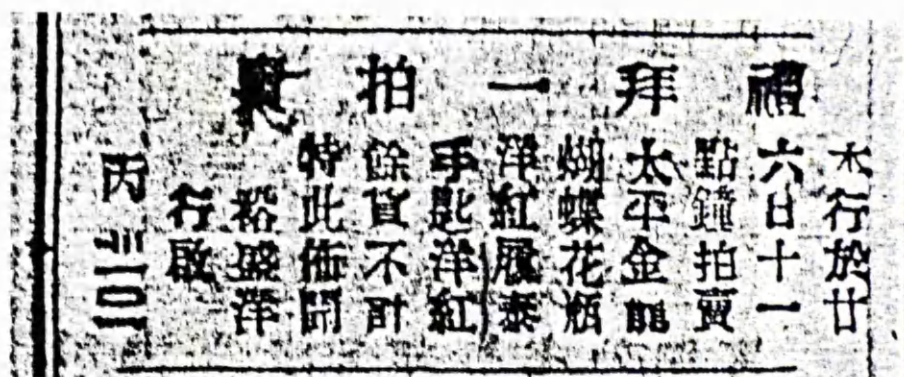 禮拜一拍賣
本行於廿
六日十一
點鐘拍賣
太平金龍
蝴蝶花瓶
洋紅履泰
手匙洋紅
餘貨不計
特此佈聞
裕盛洋
行啟
丙